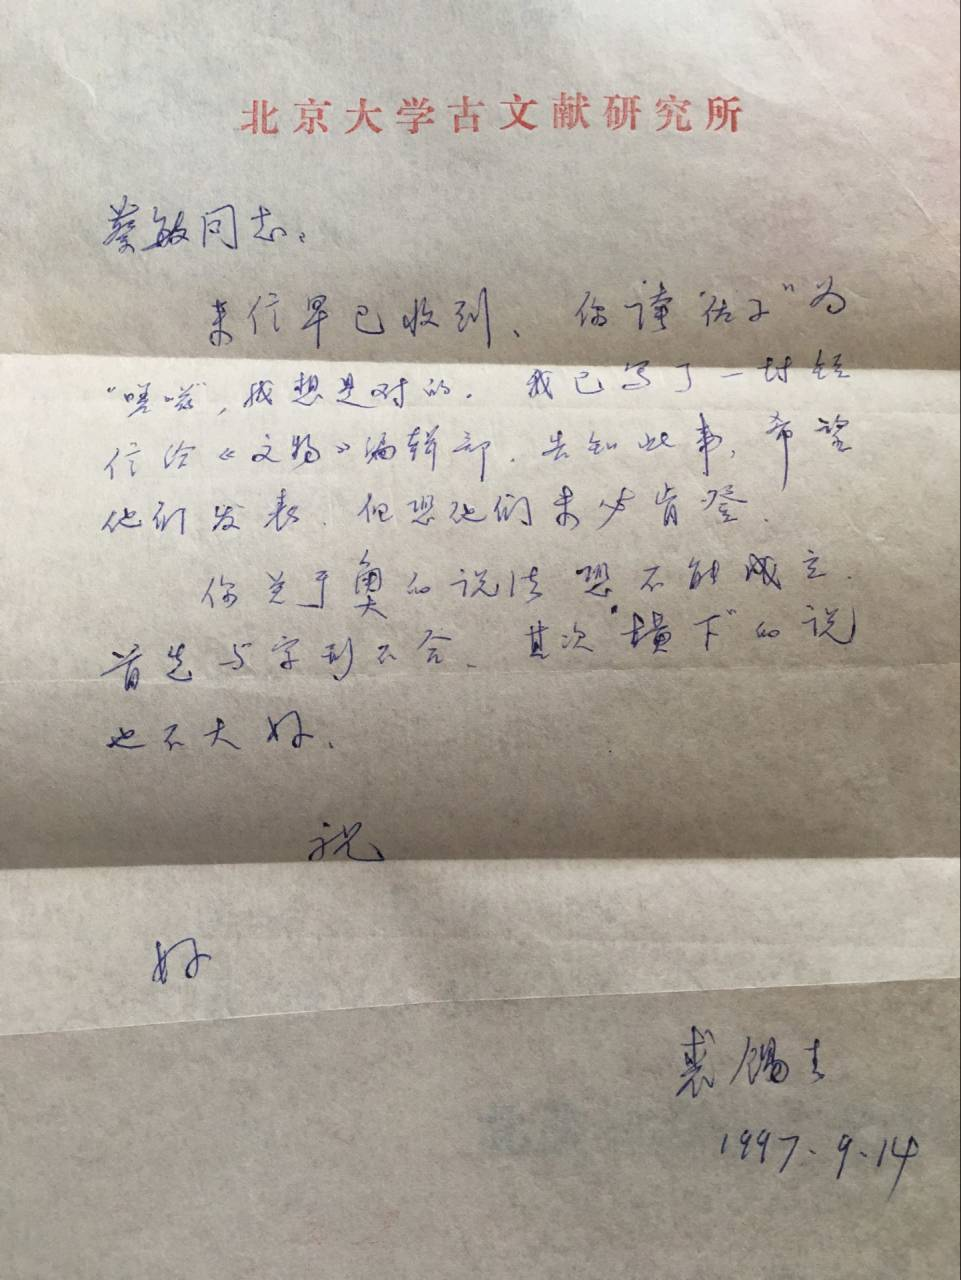 北京大学古文献研究所
蔡敏同志：
来信早已收到、你读“佐子”为
“嗟嗞”，我想是对的。我已写了一封短
信给《文物》编辑部，告知此事，希望
他们发表，但恐他们未必肯登。
你关于的说法恐不能成立。
首先与字形不合、其次“壝下”的说
也不大好。
祝
好
裘锡圭
1997.9.14